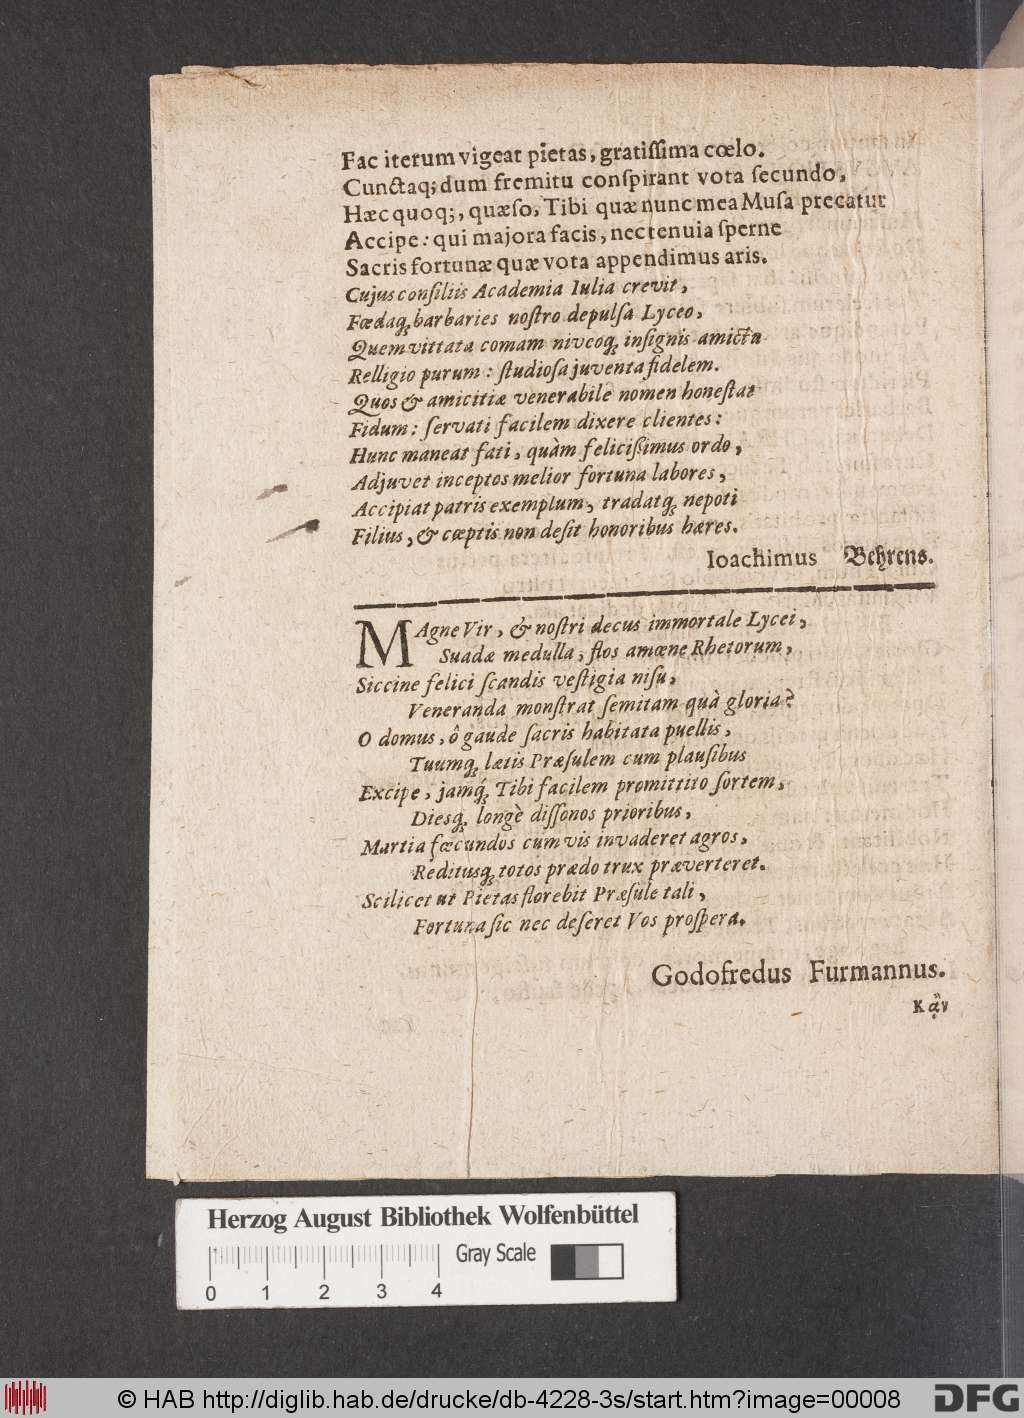 Fac iterum vigeat pietas, gratiſſima cœlo.
Cunctaq; dum fremitu conſpirant vota ſecundo,
Hæc quoq;, quæſo, Tibi quæ nunc mea Muſa precatur
Accipe: qui majora facis, nec tenuia ſperne
Sacris fortunæ quæ vota appendimus aris.
Cujus conſiliis Academia Iulia crevit,
Fœdaq́; barbaries noſtro depulſa Lyceo,
Quem vittata comam niveoq́; inſignis amictu
Relligio purum: ſtudioſa juventa fidelem.
Quos & amicitiæ venerabile nomen honeſtat
Fidum: ſervati facilem dixere clientes:
Hunc maneat fati, quàm feliciſſimus ordo,
Adjuvet inceptos melior fortuna labores,
Accipiat patris exemplum, tradatq́; nepoti
Filius, & cœptis non deſit honoribus hæres.
Ioachimus Behrens.
MAgne Vir, & noſtri decus immortale Lycei,
Suadæ medulla, flos amœne Rhetorum,
Siccine felici ſcandis veſtigia niſu,
Veneranda monſtrat ſemitam quà gloria?
O domus, ô gaude ſacris habitata puellis,
Tuumq́; lætis Præſulem cum plauſibus
Excipe, jamq́; Tibi facilem promittito ſortem,
Diesq́; longè diſſonos prioribus,
Martia fœcundos cum vis invaderet agros,
Reditusq́; totos prædo trux præverteret.
Scilicet ut Pietas florebit Præſule tali,
Fortuna ſic nec deſeret Vos proſpera.
Godofredus Furmannus.
Κᾂν
Herzog August Bibliothek Wolfenbüttel
Gray Scale
0 1 2 3 4
© HAB http://diglib.hab.de/drucke/db-4228-3s/start.htm?image=00008
DFG